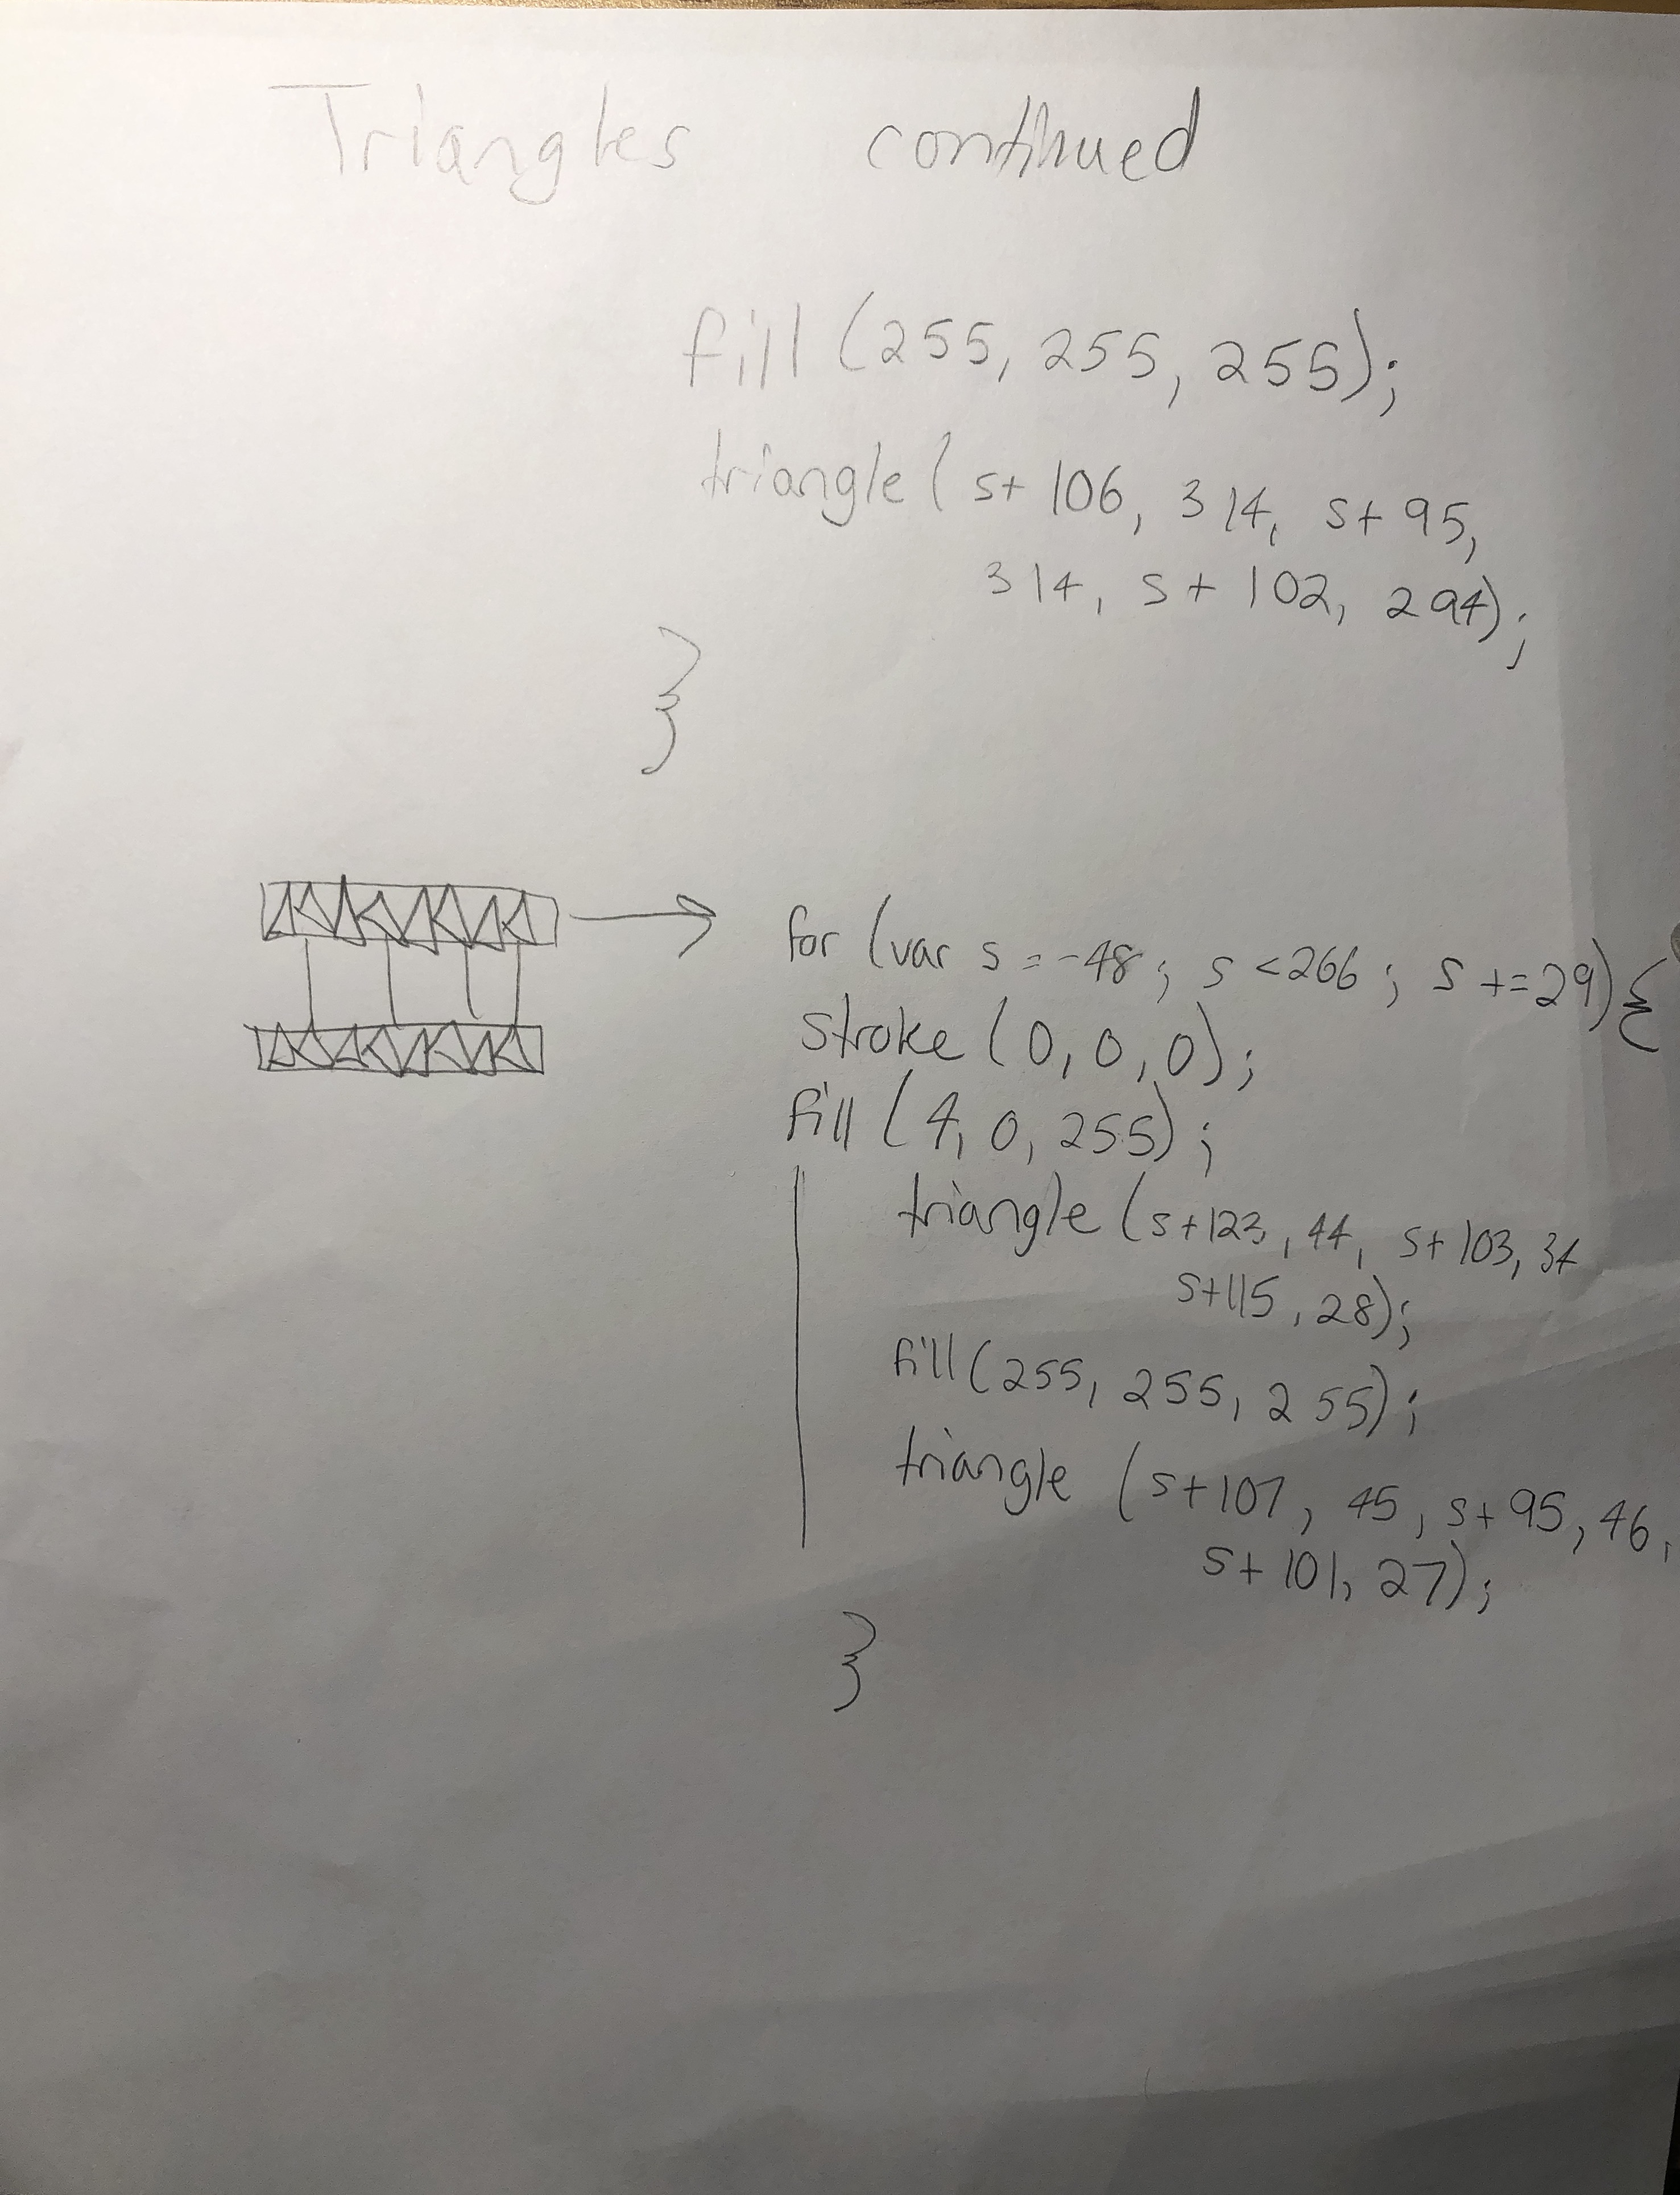 Triangles continued
fill (255, 255, 255);
triangle ( s+ 106, 314, s+ 95,
314, s+ 102, 294);
}
for (var s = -48; s <266; s +=29) {
stroke (0, 0, 0);
fill (4, 0, 255);
triangle (s+123, 44, s+103, 34
s+115, 28);
fill (255, 255, 255);
triangle (s+107, 45, s+95, 46,
s+101, 27);
}